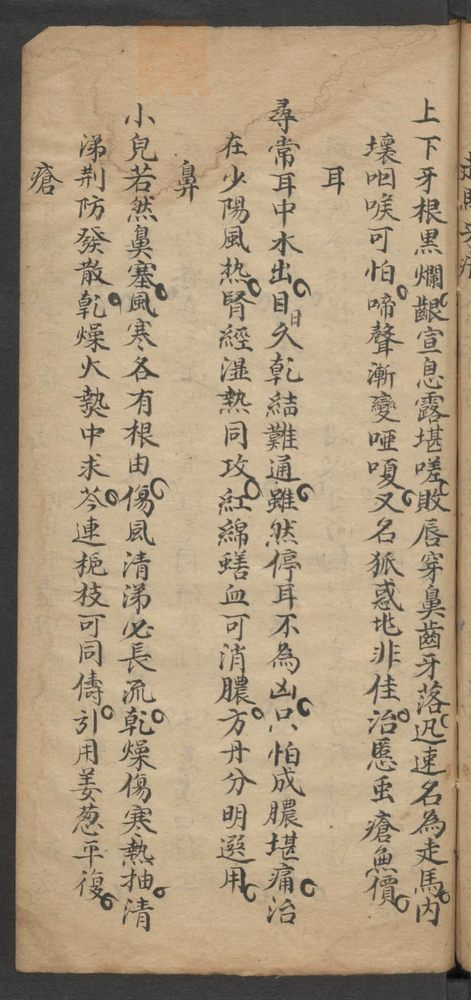 上下牙根黑爛齦宣息露堪嗟敗唇穿鼻齒牙落迅速名為走馬內
壞咽喉可怕啼聲漸變啞嗄又名狐惑非佳治䘌虫瘡無價
耳
尋常耳中水出日久乾結難通雖然停耳不為凶只怕成膿堪痛治
在少陽風热腎經湿熱同攻紅綿蟮血可消膿方丹分明選用
鼻
小兒若然鼻塞風寒各有根由傷風清涕必長流乾燥傷寒熱抽清
涕荆防發散乾燥火熱中求芩連栀枝可同儔引用姜葱平復
瘡